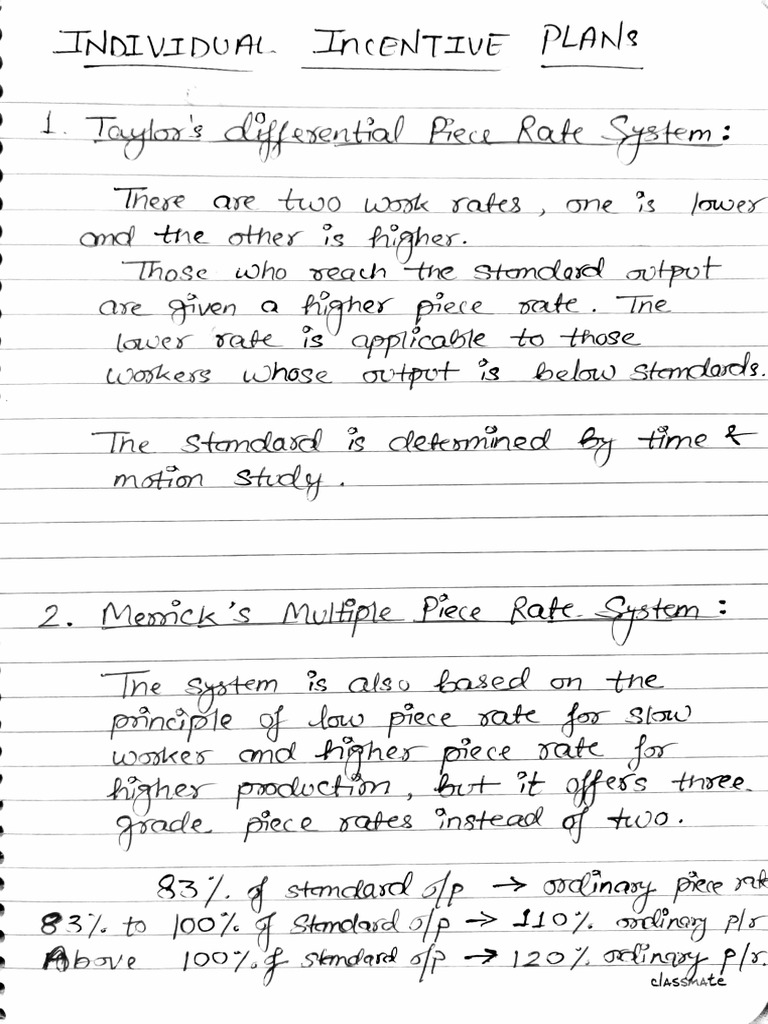 INDIVIDUAL INCENTIVE PLANS
1. Taylor's differential Piece Rate System :
There are two work rates, one is lower
and the other is higher.
Those who reach the standard output
are given a higher piece rate. The
lower rate is applicable to those
workers whose output is below standards.
The standard is determined by time &
motion study.
2. Merrick's Multiple Piece Rate System :
The system is also based on the
principle of low piece rate for slow
worker and higher piece rate for
higher production, but it offers three
grade piece rates instead of two.
83% of standard o/p → ordinary piece rate
83% to 100% of standard o/p → 110% ordinary p/r
Above 100% of standard o/p → 120% ordinary p/r.
classmate